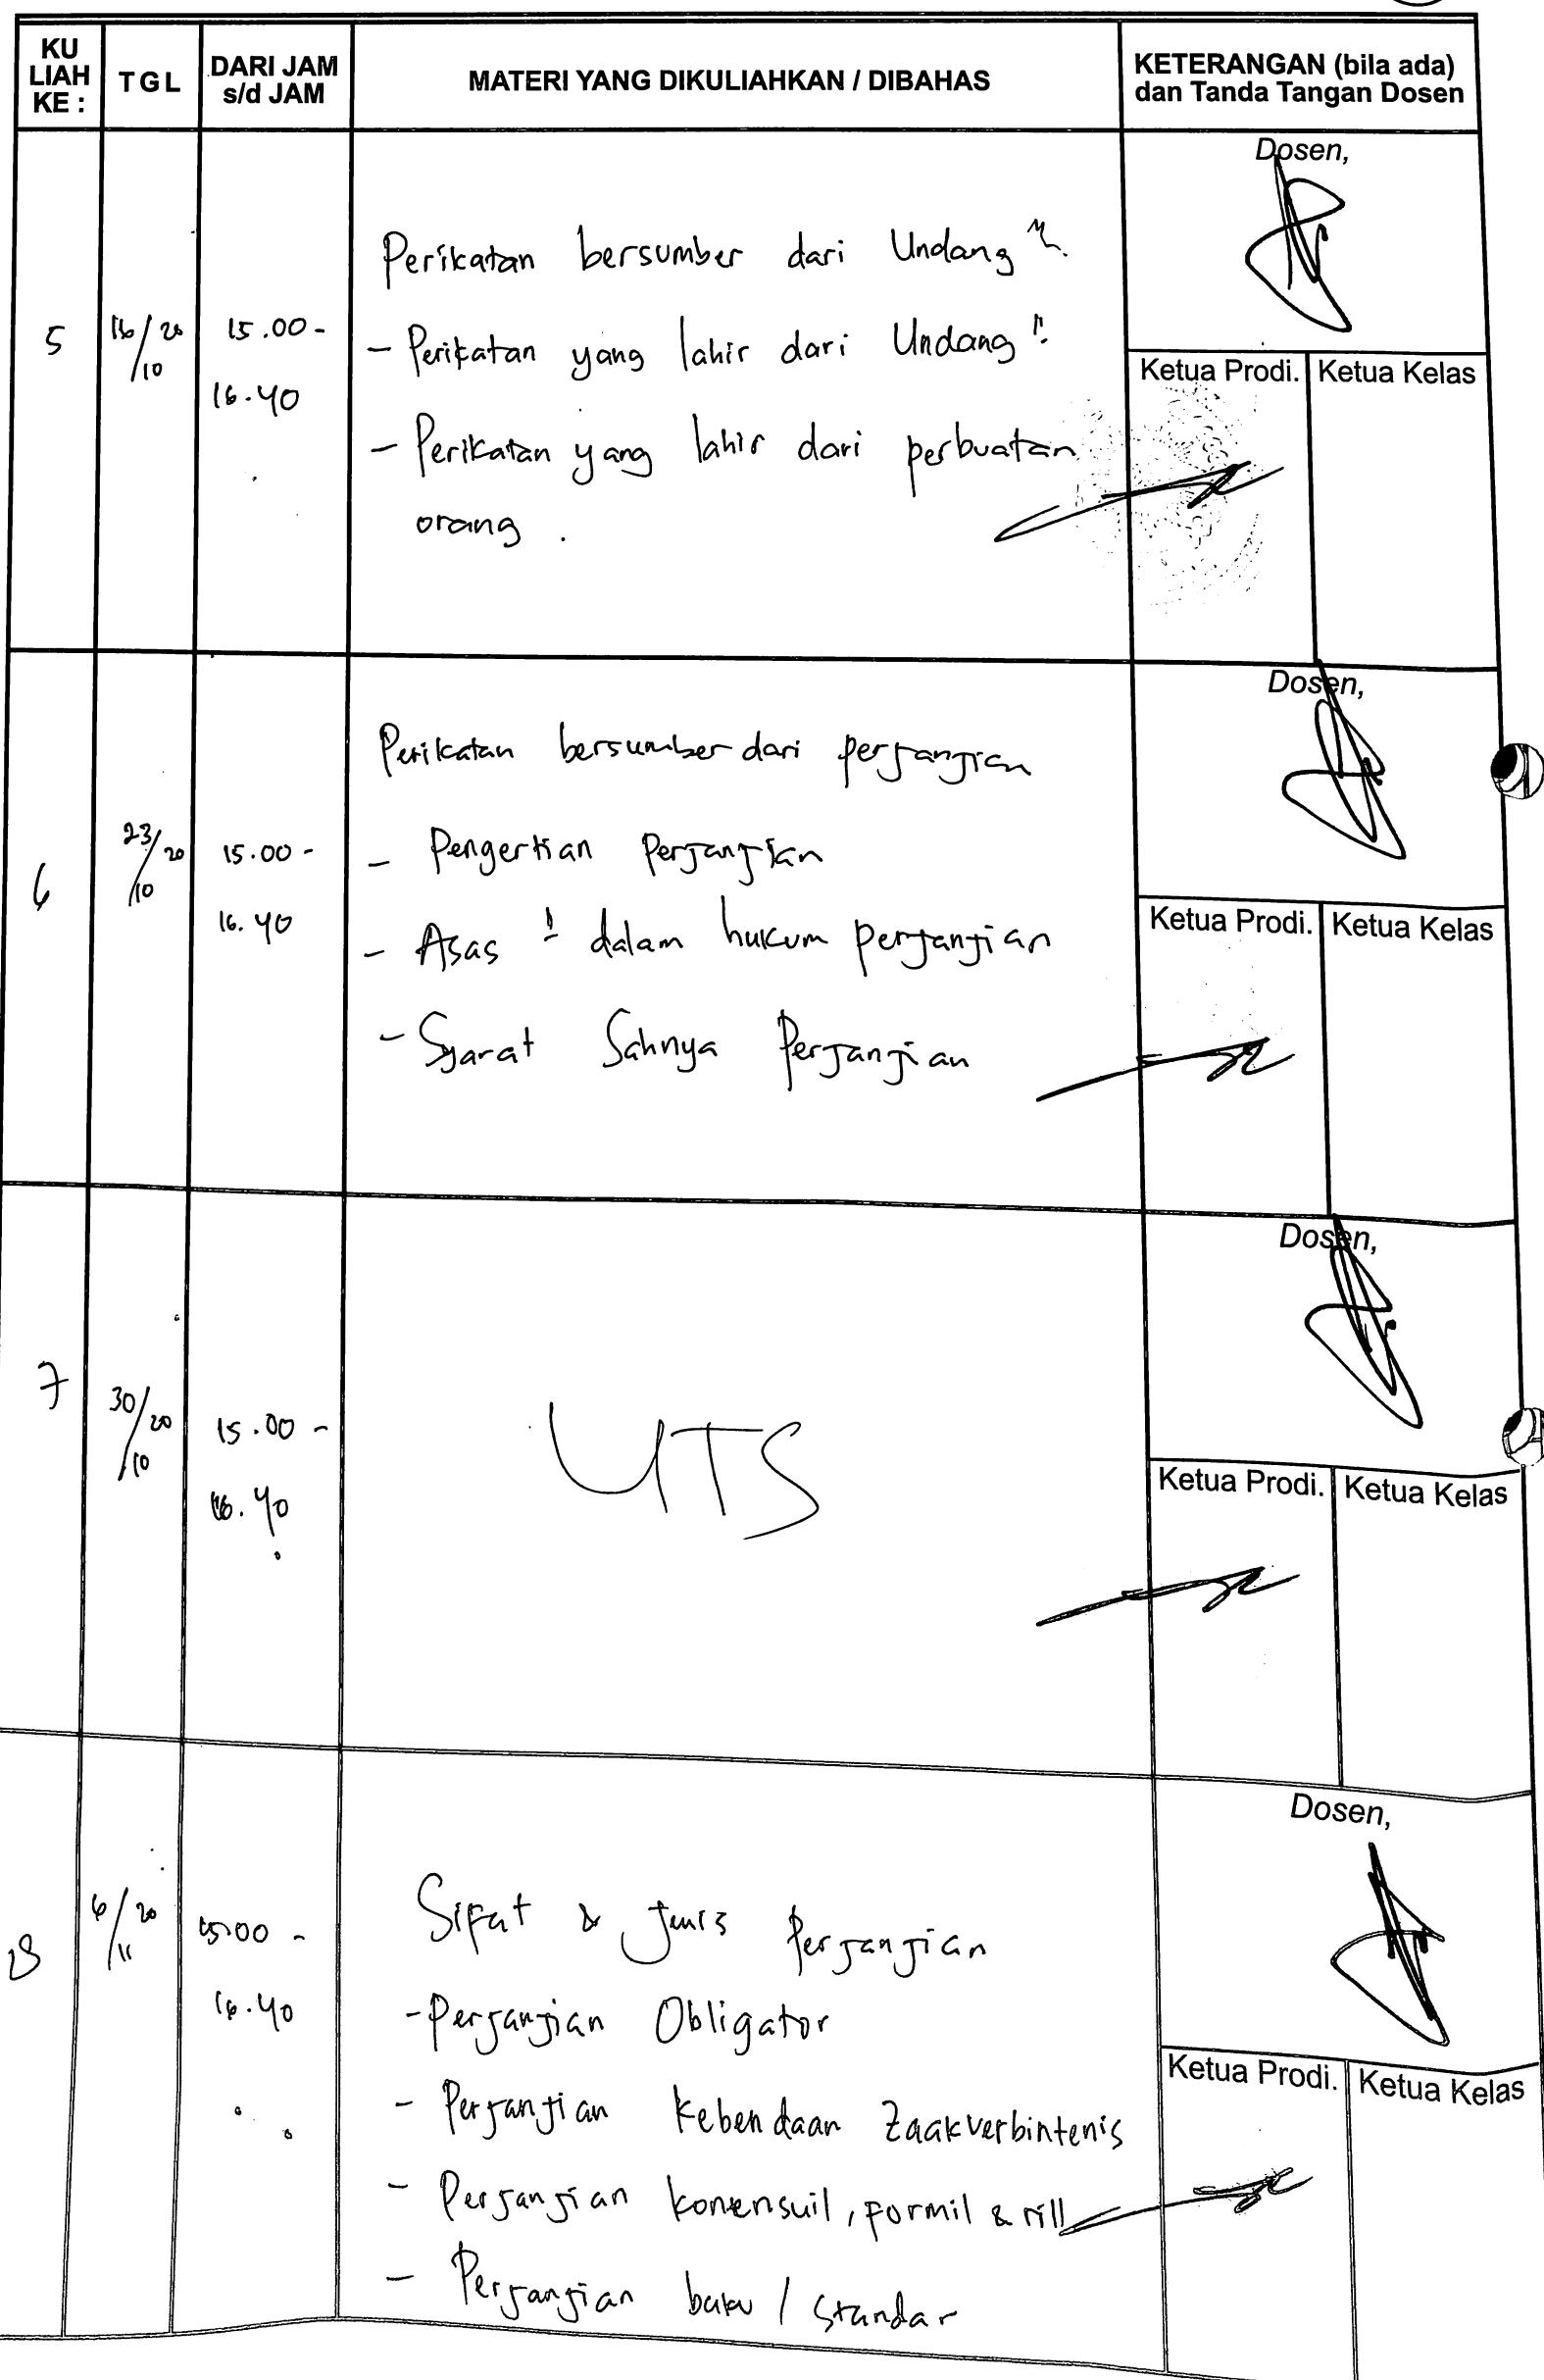 KU LIAH KE :
TGL
DARI JAM s/d JAM
MATERI YANG DIKULIAHKAN / DIBAHAS
KETERANGAN (bila ada) dan Tanda Tangan Dosen
5
16/10 20
15.00 -
16.40
Perikatan bersumber dari Undang"
- Perikatan yang lahir dari Undang"
- Perikatan yang lahir dari perbuatan
orang .
Dosen,
Ketua Prodi.
Ketua Kelas
6
23/10 20
15.00 -
16.40
Perikatan bersumber dari perjanjian
- Pengertian Perjanjian
- Asas" dalam hukum perjanjian
- Syarat Sahnya Perjanjian
Dosen,
Ketua Prodi.
Ketua Kelas
7
30/10 20
15.00 -
16.40
UTS
Dosen,
Ketua Prodi.
Ketua Kelas
8
6/11 20
15.00 -
16.40
Sifat & Jenis Perjanjian
- Perjanjian Obligator
- Perjanjian Kebendaan Zaakverbintenis
- Perjanjian konensuil, formil & rill
- Perjanjian baku / Standar
Dosen,
Ketua Prodi.
Ketua Kelas